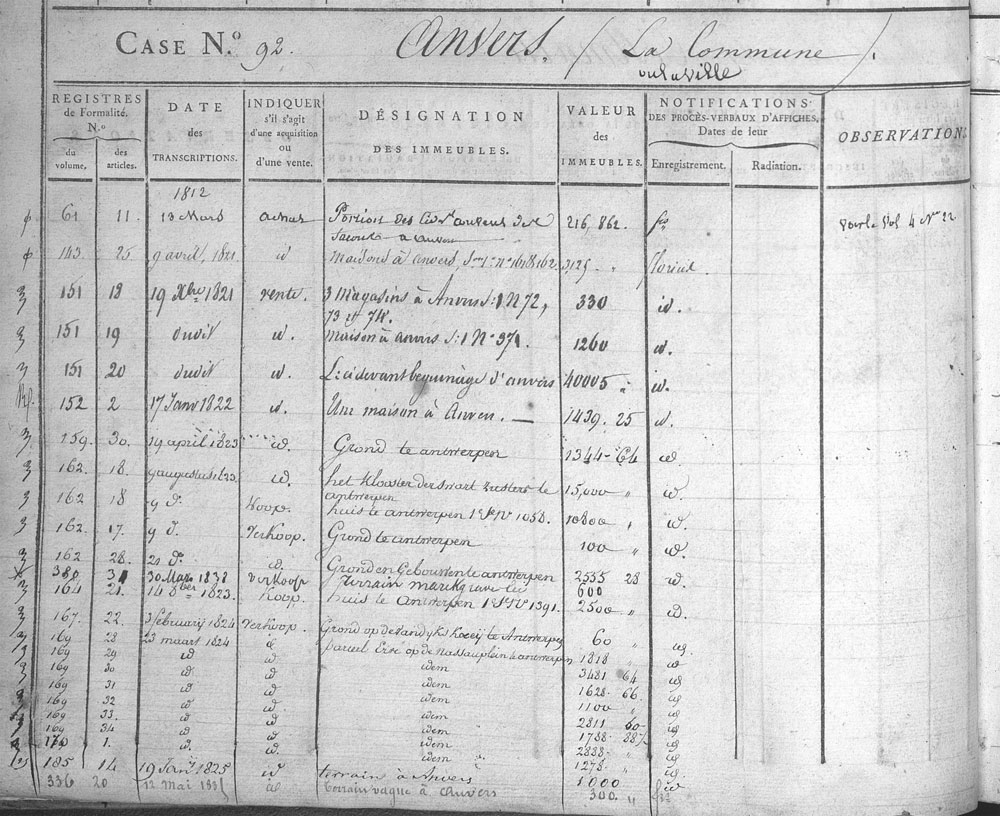 CASE N.º 92. Anvers. ( La Commune ).
ou la Ville
REGISTRES de Formalité. N.º
du volume.
des articles.
DATE des TRANSCRIPTIONS.
INDIQUER s'il s'agit d'une acquisition ou d'une vente.
DÉSIGNATION DES IMMEUBLES.
VALEUR des IMMEUBLES.
NOTIFICATIONS DES PROCÈS-VERBAUX D'AFFICHES. Dates de leur
Enregistrement.
Radiation.
OBSERVATION.
1812
61 11. 13 Mars achat Portion des à anvers 216,862.
143. 25. 9 avril, 1821 id Maisons à Anvers, 3125 "
151 18 19 Xbre 1821 vente. 3 Magasins à Anvers S:1 N 72, 330 id.
73 et 74.
151 19 dudit id. maison à anvers S:1 Nº 371. 1260 id.
151 20 dudit id. L: cidevant beguinage d'anvers 40005 " id.
152 2 17 Janv 1822 id. Une maison à Anvers. — 1439. 25 id.
159. 30. 19 april 1823 id. Grond te antwerpen 1344-64 id.
162. 18. 9 augustus 1823 id. het klooster der swart zusters te 15,000 " id.
antwerpen
162 18 9 d°. Koop. huis te antwerpen 1058. 10800 " id.
162. 17. 9 d. Verkoop. Grond te antwerpen 100 " id.
162 28. 21 d° id. Grond en Gebouwen te antwerpen 2555 28 id.
380 31 30 Mars 1838 verkoop terrain 600
164 21. 14 8ber 1823. Koop. huis te Antwerpen 1391. 2500 " id.
167. 22. 3 februarij 1824 Verkoop. Grond op de te Antwerpen 60 " id
169 28 23 maart 1824 id parceel Erve op de Nassauplein te antwerpen 1818 " id
169 29 id id idem 3481 64 id
169 30 id id idem 1628-66. id
169 31 id id idem 1100 " id
169 32 id id idem 2811 60 id
169 33. id id idem 1738-88 id
169 34 id id idem 2888- " id
170 1. id. id. idem 1278 " id
185 14 19 Janv 1825 id terrain à Anvers 1000 id
336 20 12 Mai id terrain vague à Anvers 300 "